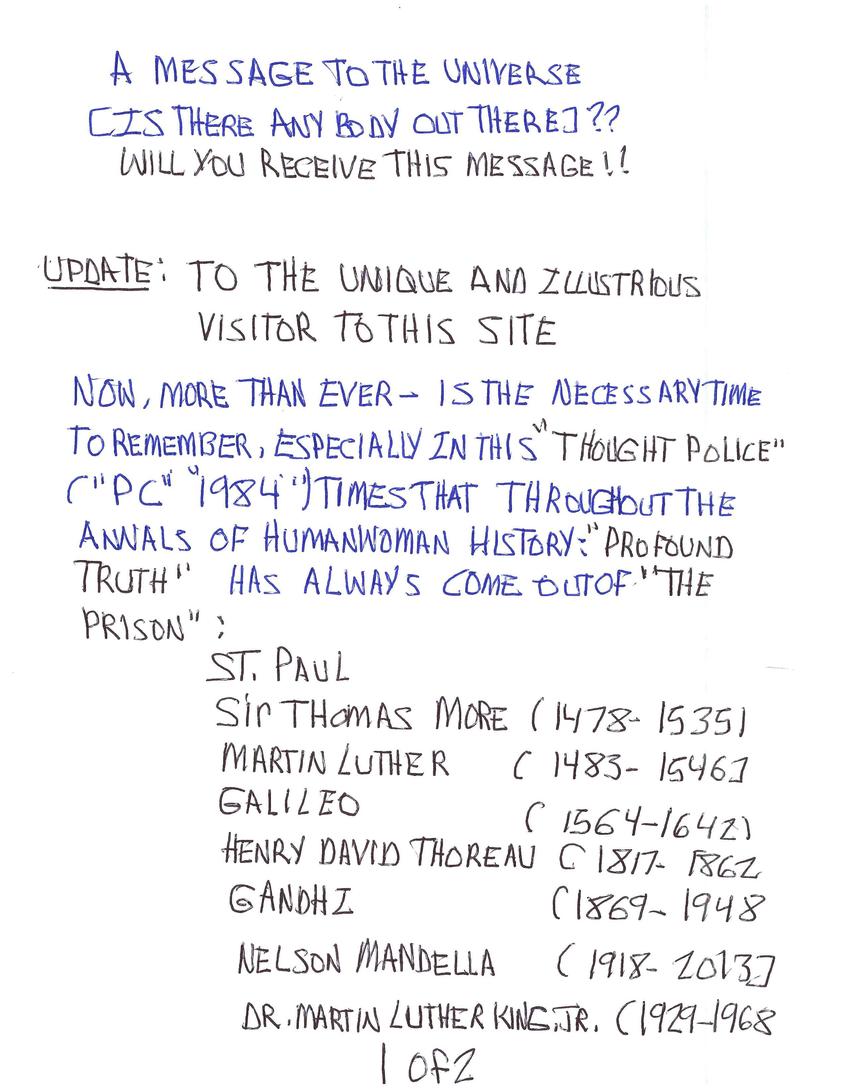 A MESSAGE TO THE UNIVERSE
[IS THERE ANY BODY OUT THERE]??
WILL YOU RECEIVE THIS MESSAGE!!
UPDATE: TO THE UNIQUE AND ILLUSTRIOUS
VISITOR TO THIS SITE
NOW, MORE THAN EVER - IS THE NECESSARY TIME
TO REMEMBER, ESPECIALLY IN THIS "THOUGHT POLICE"
("PC" "1984") TIMES THAT THROUGHOUT THE
ANNALS OF HUMANWOMAN HISTORY: "PROFOUND
TRUTH" HAS ALWAYS COME OUT OF "THE
PRISON":
ST. PAUL
Sir THOMAS MORE (1478-1535)
MARTIN LUTHER (1483-1546]
GALILEO (1564-1642)
HENRY DAVID THOREAU (1817-1862
GANDHI (1869-1948
NELSON MANDELLA (1918-2013]
DR. MARTIN LUTHER KING, JR. (1929-1968
1 OF 2